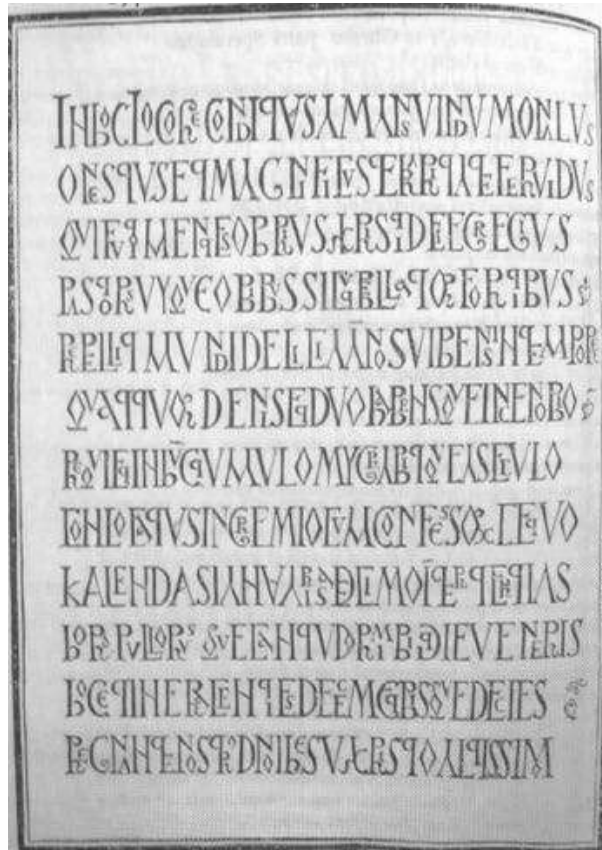 IN HOC LOCO RECONDITVS AMANSVINDVS
ONESTVS ET MAGNIFICVS ET KARITATE FERVIDVS
QVI FVIT MENTE SOBRIVS XRSTI DEI EGREGIVS
OBIBVS SICVT BELLATOR FORTIBVS
REPELLIT MVNDI DELICIA ANNOS VIBENS IN TEMPORE
QVATTVOR DENIS ET DVO HABENSQVE IN CENOBIO
REQVIEVIT IN HVC TVMVLO MIGRABITQVE A SECVLO
CONLOCATVS IN GREMIO CVM CETVO
KALENDAS IANVARIAS DECIMO INTER TERTIAS
HORA PVLLORVM DORMIBIT DIE VENERIS
HOC ET IN ERA CENTIES DECEM BISQVE DECIES
REGNANTE NOSTRO DNO IHESV XRSTO ALTISSIMO